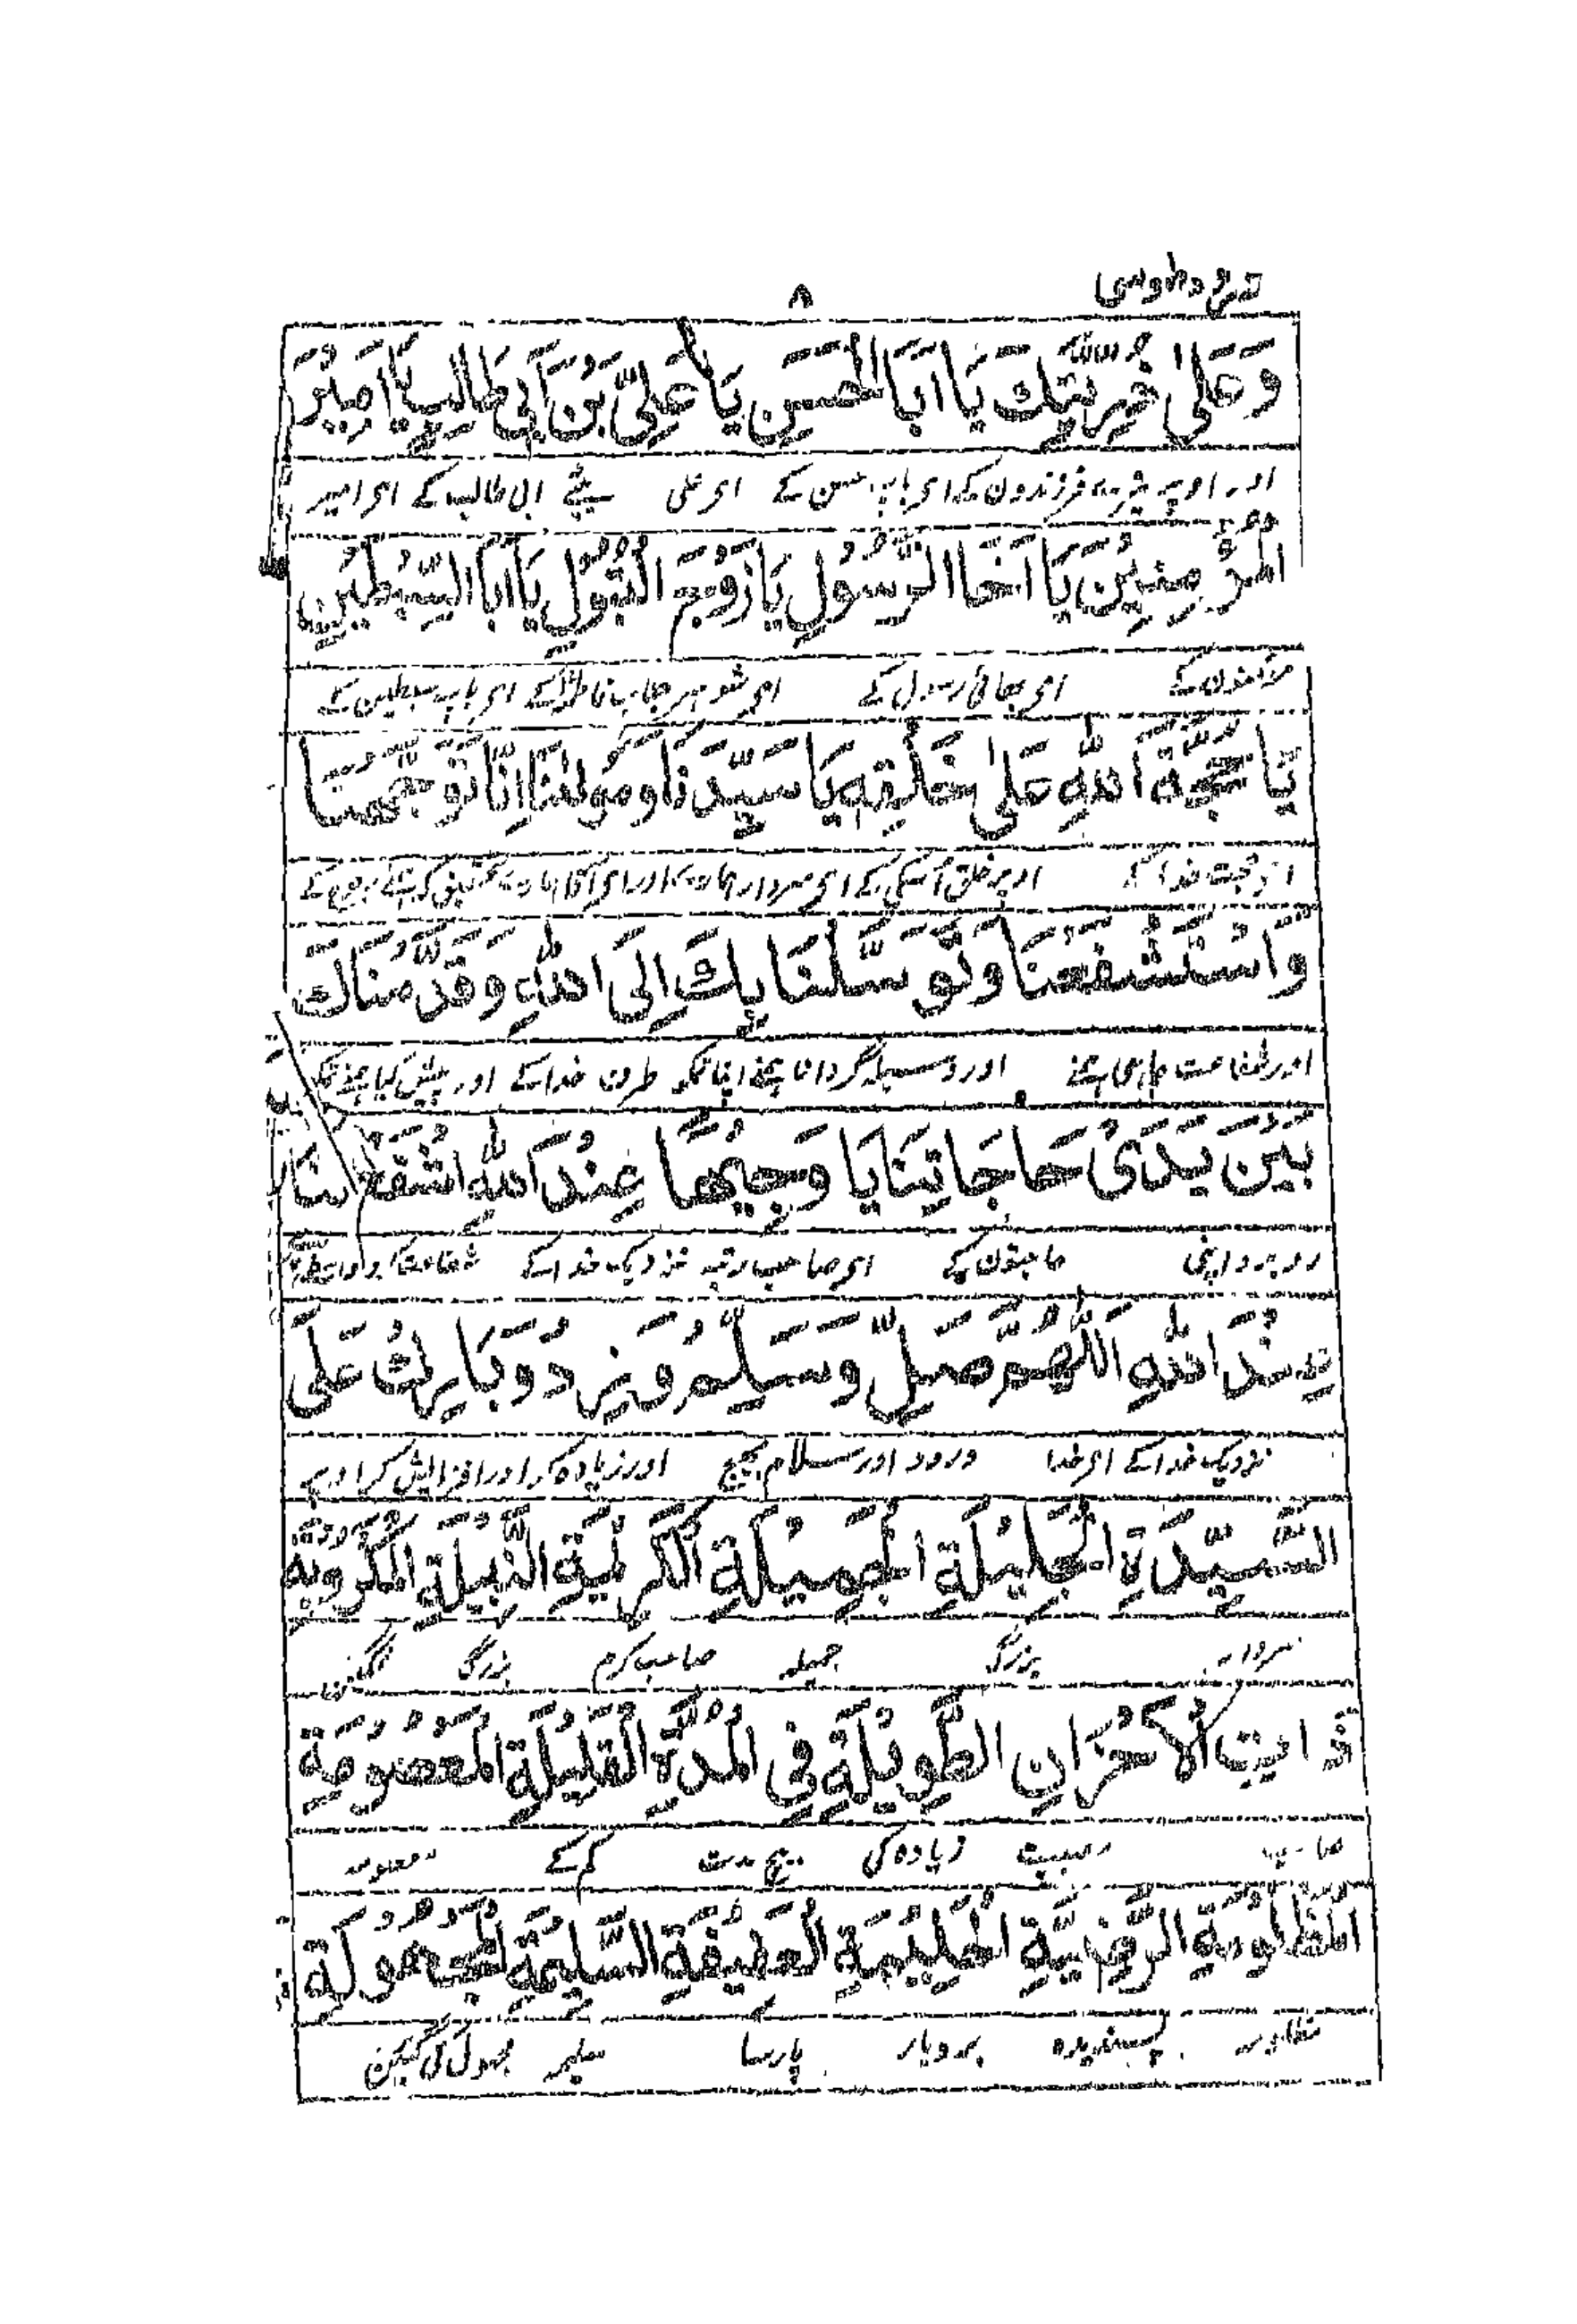 درود طوسی ۸
وَعَلٰی ذُرِّیَّتِكَ یَا اَبَا الْحَسَنِ یَا عَلِیَّ بْنَ اَبِی طَالِبٍ یَا اَمِیْرَ
اور اوپر تیرے فرزندون کے ای باپ حسن کے ای علی بیٹے ابی طالب کے ای امیر
الْمُؤْمِنِیْنَ یَا اَخَا الرَّسُوْلِ یَا زَوْجَ الْبَتُوْلِ یَا اَبَا السِّبْطَیْنِ
مؤمنون کے ای بھائی رسول کے ای شوہر جناب فاطمہ کے ای باپ سبطین کے
یَا حُجَّةَ اللّٰهِ عَلٰی خَلْقِهٖ یَا سَیِّدَنَا وَمَوْلٰنَا اِنَّا تَوَجَّهْنَا
ای حجت خدا کے اوپر خلق اسکی کے ای سردار ہمارے اور ای آقا ہمارے
وَاسْتَشْفَعْنَا وَتَوَسَّلْنَا بِكَ اِلَی اللّٰهِ وَقَدَّمْنَاكَ
اور شفاعت چاہی ہمنے اور وسیلہ گردانا ہمنے اپنا تمکو طرف خدا کے اور پیش کیا ہمنے تمکو
بَیْنَ یَدَیْ حَاجَاتِنَا یَا وَجِیْهًا عِنْدَ اللّٰهِ اشْفَعْ لَنَا
روبرو اپنی حاجتون کے ای صاحب رتبہ نزدیک خدا کے شفاعت کر واسطے
عِنْدَ اللّٰهِ اَللّٰهُمَّ صَلِّ وَسَلِّمْ وَزِدْ وَبَارِكْ عَلَی
نزدیک خدا کے ای خدا درود اور سلام بھیج اور زیادہ کر اور افزایش کر اوپر
السَّیِّدَةِ الْجَلِیْلَةِ الْجَمِیْلَةِ الْكَرِیْمَةِ النَّبِیْلَةِ الْمَكْرُوْبَةِ
سردار بزرگ جمیلہ صاحب کرم بزرگ
ذَاتِ الْاَحْزَانِ الطَّوِیْلَةِ فِی الْمُدَّةِ الْقَلِیْلَةِ الْمَعْصُوْمَةِ
صاحب زیادہ کی بیچ مدت کم کے معصومہ
الْمَظْلُوْمَةِ الرَّضِیَّةِ الْحَلِیْمَةِ الْعَفِیْفَةِ السَّلِیْمَةِ الْمَجْهُوْلَةِ
مظلومہ پسندیدہ بردبار پارسا سلیمہ مجہول کی گئین